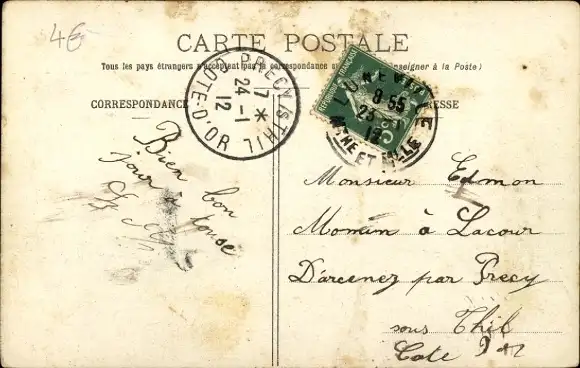 4€
CARTE POSTALE
Tous les pays étrangers n'acceptent pas la correspondance au (se renseigner à la Poste)
CORRESPONDANCE
PRECY S/S THIL
17 *
24-1
12
COTE-D'OR
LUNEVILLE
8 55
23 -1
12
MTHE ET MLLE
Bien bon
jour à tous
Monsieur Edmon
Momin à Lacour
D'arcenez par Precy
sous Thil
Cote D'or